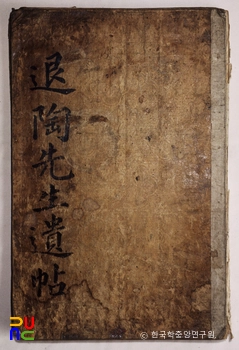 退陶先生遺帖
PURC
© 한국학중앙연구원